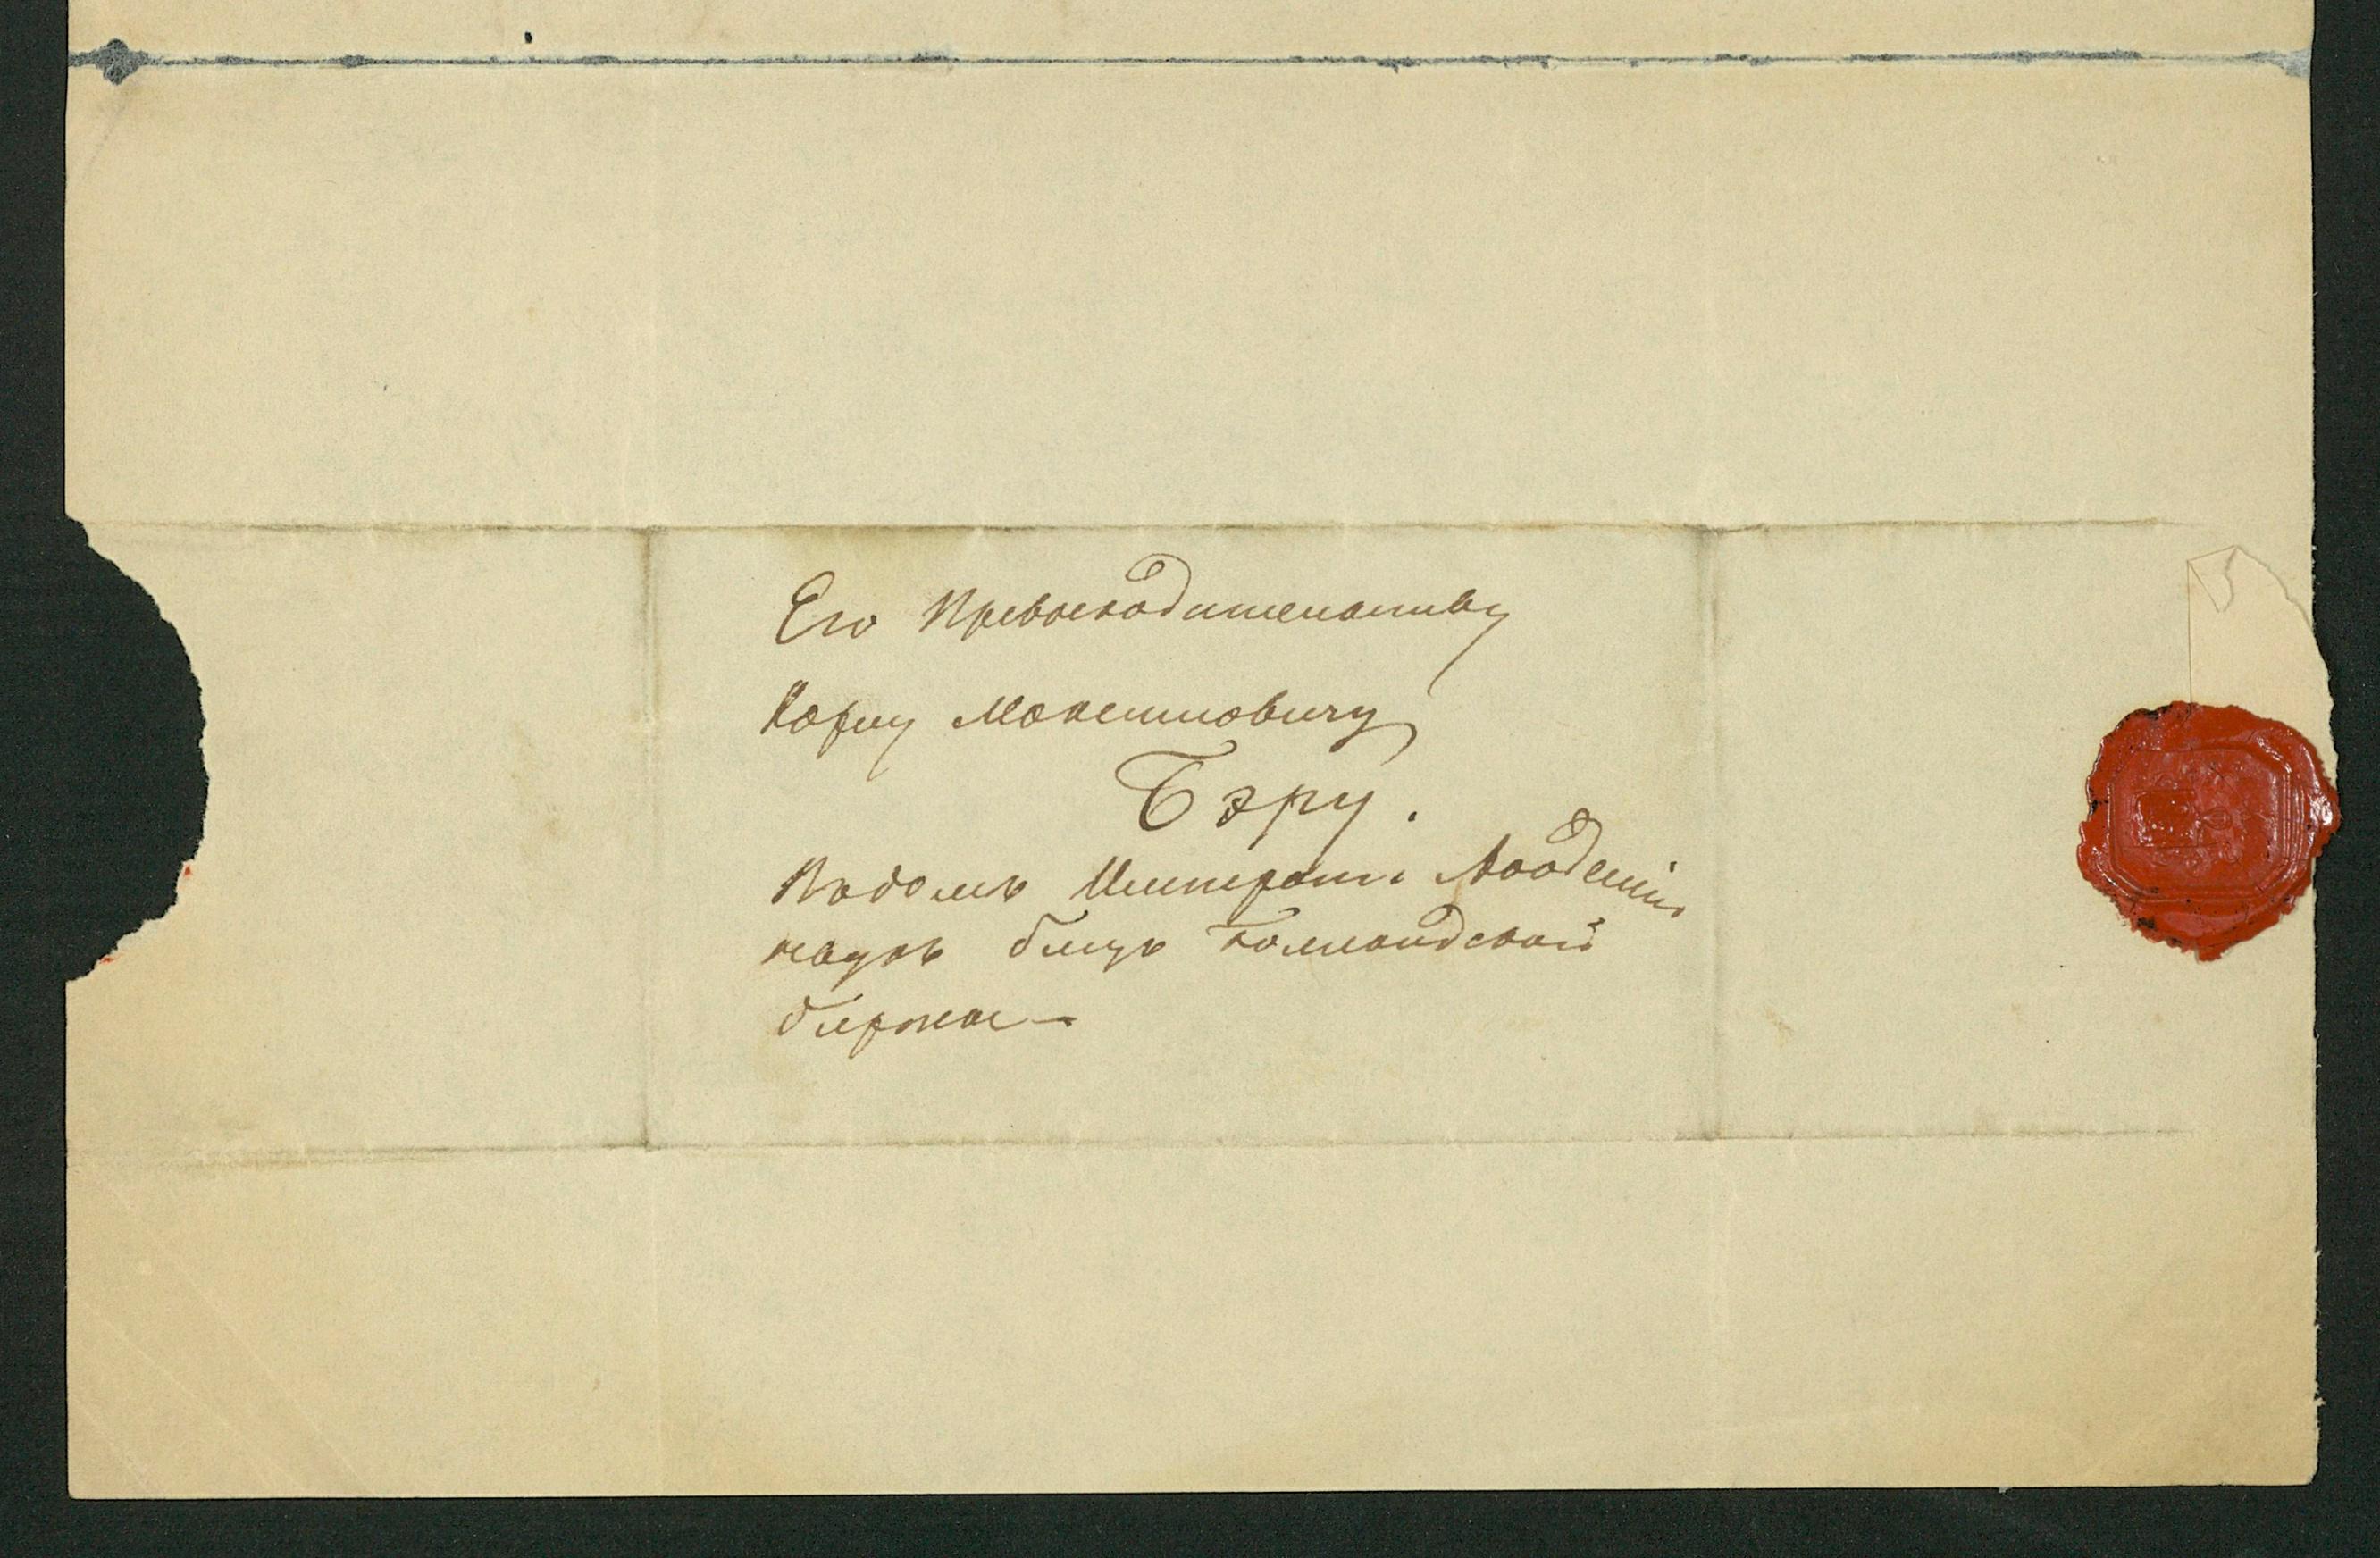 Его Превосходительству
Карлу Максимовичу
Бэру.
В домѣ Императ. Академіи
наукъ близъ Голландской
биржи